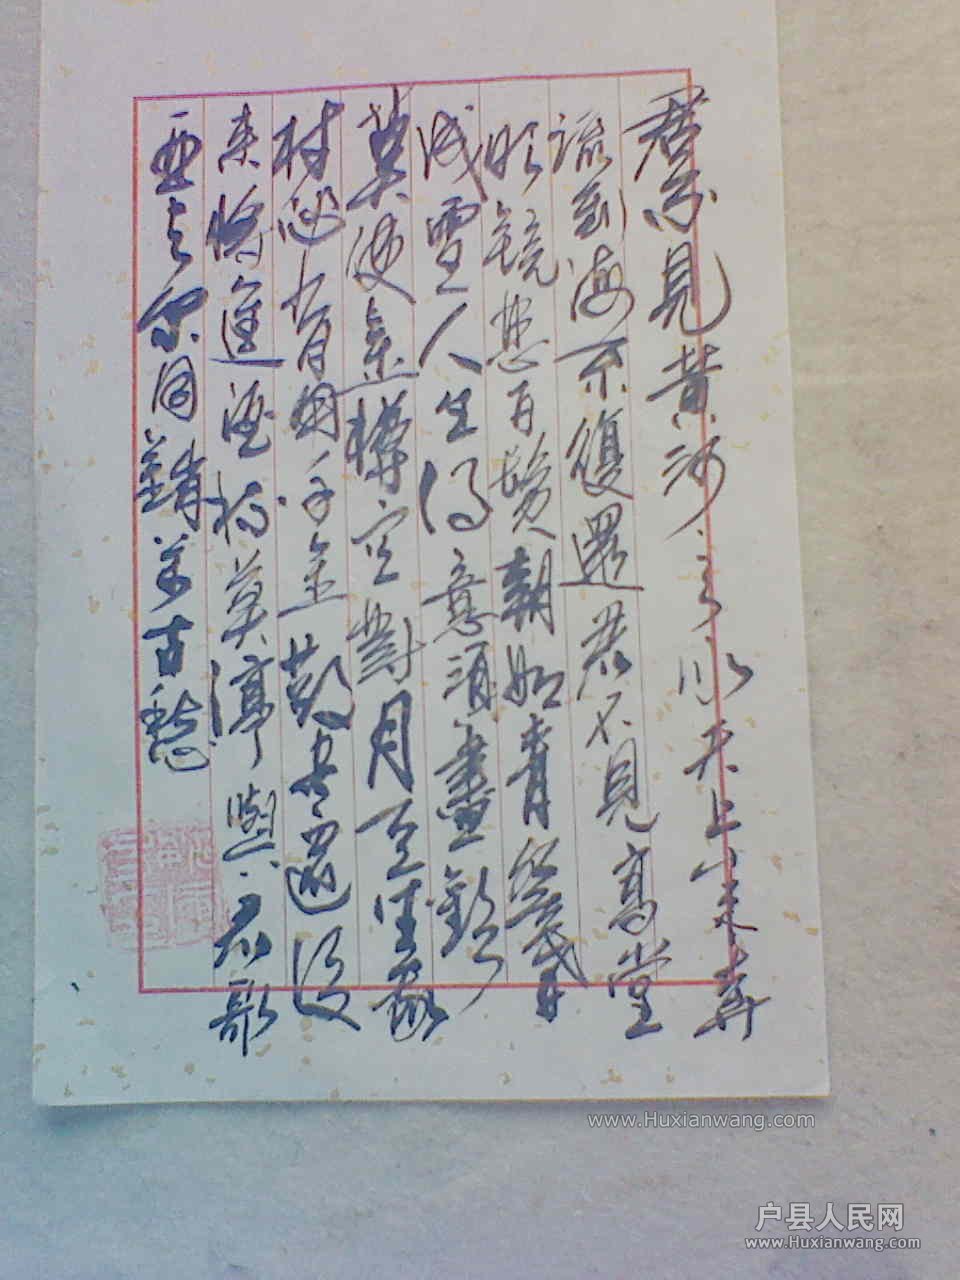 君不見黄河之水天上來奔
流到海不復還君不見高堂
明鏡悲白髮朝如青絲暮
成雪人生得意須盡歡
莫使金樽空對月天生我
材必有用千金散尽還復
来将進酒杯莫停與君歌
与尔同銷萬古愁
www.Huxianwang.com
户县人民网
www.Huxianwang.com